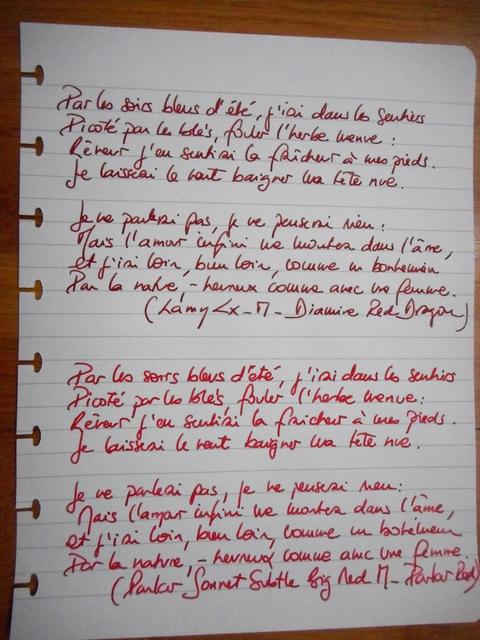 Par les soirs bleus d'été, j'irai dans les sentiers
Picoté par les blés, fouler l'herbe menue :
Rêveur j'en sentirai la fraîcheur à mes pieds.
Je laisserai le vent baigner ma tête nue.
Je ne parlerai pas, je ne penserai rien :
Mais l'amour infini me montera dans l'âme,
et j'irai loin, bien loin, comme un bohémien
Par la nature, - heureux comme avec une femme.
(Lamy Lx - M - Diamine Red Dragon)
Par les soirs bleus d'été, j'irai dans les sentiers
Picoté par les blés fouler l'herbe menue :
Rêveur j'en sentirai la fraîcheur à mes pieds.
Je laisserai le vent baigner ma tête nue.
Je ne parlerai pas, je ne penserai rien :
Mais l'amour infini me montera dans l'âme,
et j'irai loin, bien loin, comme un bohémien
Par la nature, - heureux comme avec une femme.
(Parker Sonnet Subtle Big Red M - Parker Red)